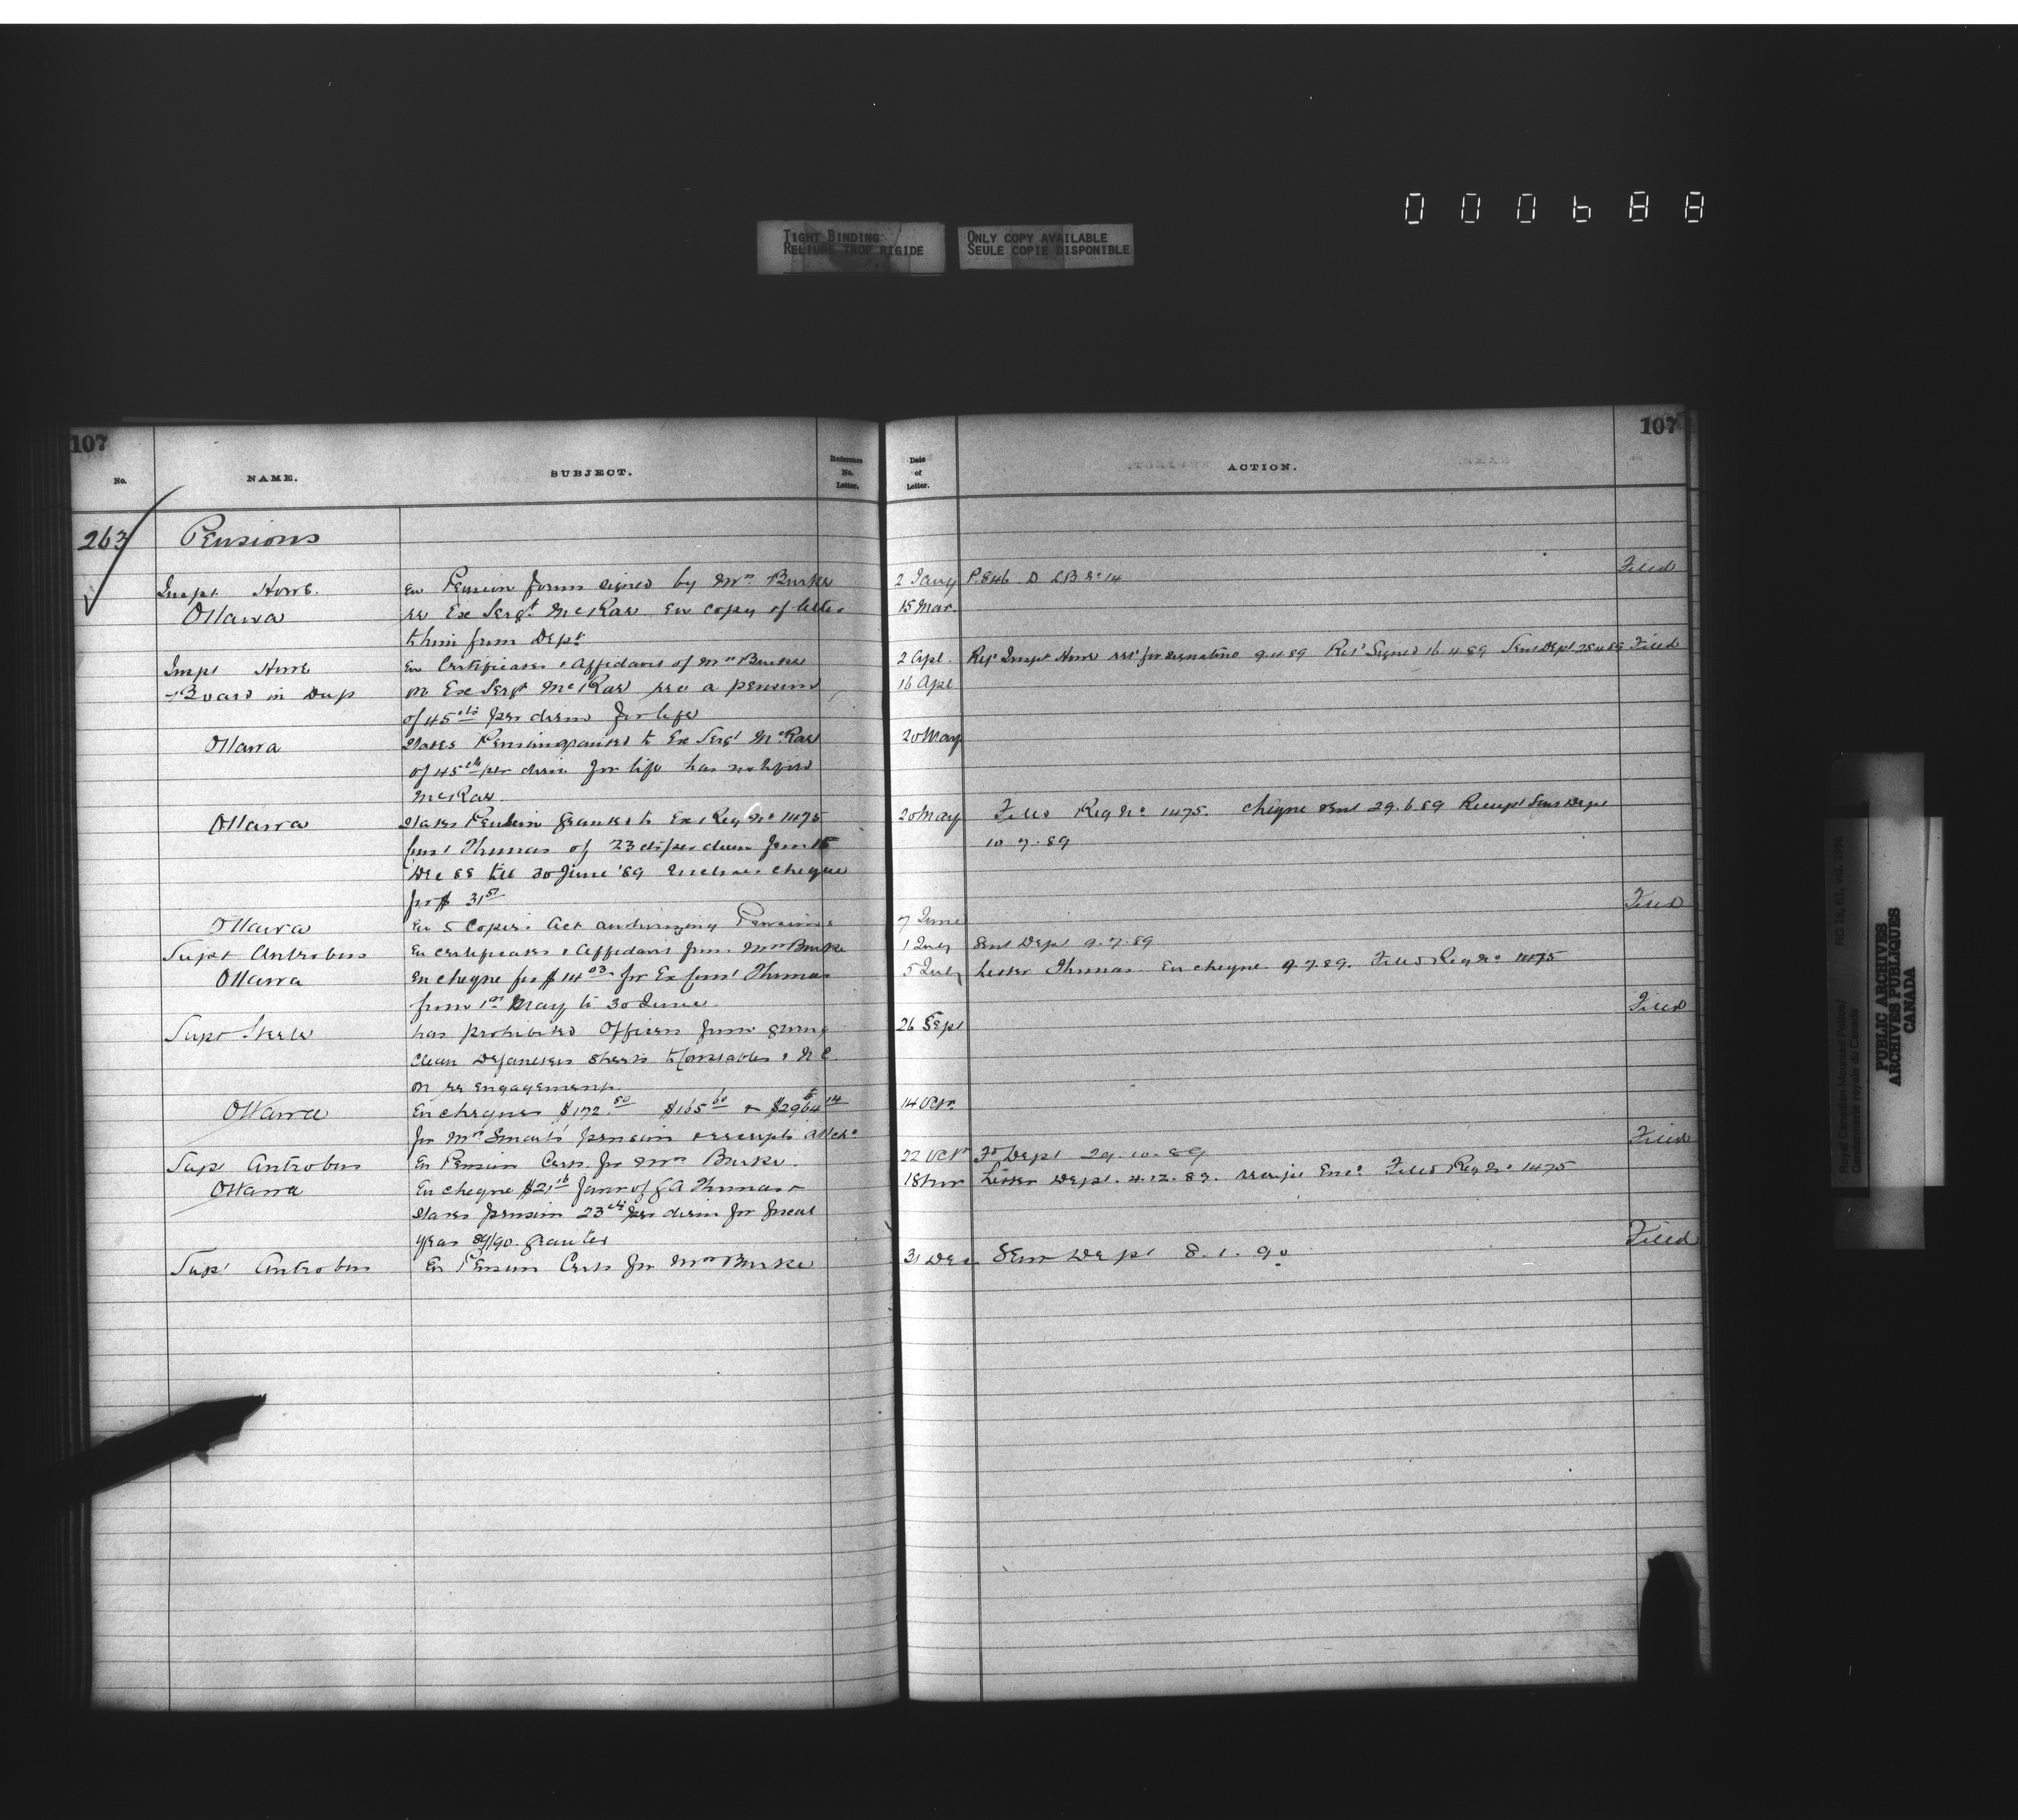 000688
TIGHT BINDING
RELIURE TROP RIGIDE
ONLY COPY AVAILABLE
SEULE COPIE DISPONIBLE
107
107
No.
NAME.
SUBJECT.
Reference No. Letter.
Date of Letter.
ACTION.
263 Pensions
Filed
Inspr Howe. En Pension forms signed by Mrs Burke 2 Jany P.846 D LB No 14
Ottawa re Ex Sergt McRae En copy of letter 15 Mar.
to him from Dept
Inspr Howe En Certificates & Affidavit of Mrs Burke 2 Apl. Ret Inspr Howe for signature 9.4.89 Ret Signed 16.4.89 Sent Dept 25.4.89 Filed
Board in Dup on Ex Sergt McRae rec a pension 16 Apl
of 45 cts per diem for life
Ottawa States Pension granted to Ex Sergt McRae 20 May
of 45 cts per diem for life has notified
McRae
Ottawa States Pension granted to Ex Reg No 1475 20 May Filed Reg No. 1475. Cheque sent 29.6.89 Receipt Sent Dept
Const Thomas of 23 cts per diem from 15 10.7.89
Dec 88 till 30 June '89 Encloses cheque
for $ 31
Filed
Ottawa En 5 Copies Act authorizing Pensions 7 June
Supt Antrobus En certificates & Affidavit from Mrs Burke 1 July Sent Dept 9.7.89
Ottawa En cheque for $14 03 for Ex Const Thomas 5 July Letter Thomas En cheque 9.7.89. Filed Reg No 1475
from 1st May to 30 June.
Filed
Supt Steele has prohibited Officers from giving 26 Sept
clean Defaulters sheets to Constables & N C
on re engagement.
Ottawa En cheques $172.50 $165 60 & $2964 14 14 Octr
for Mrs Smart's pension & receipts
Filed
Supt Antrobus En Pension Certs. for Mrs Burke. 22 Octr To Dept 29.10.89
Ottawa En cheque $21 16 favor of G A Thomas & 18 Nov Letter Dept. 4.12.89. receipt Enc. Filed Reg No 1475
States pension 23 cts per diem for fiscal
year 89/90. granted
Filed
Supt Antrobus En Pension Certs for Mrs Burke 31 Dec Sent Dept 8.1.90
RG 18, B1, vol.
Royal Canadian Mounted Police/
Gendarmerie royale du Canada
PUBLIC ARCHIVES
ARCHIVES PUBLIQUES
CANADA